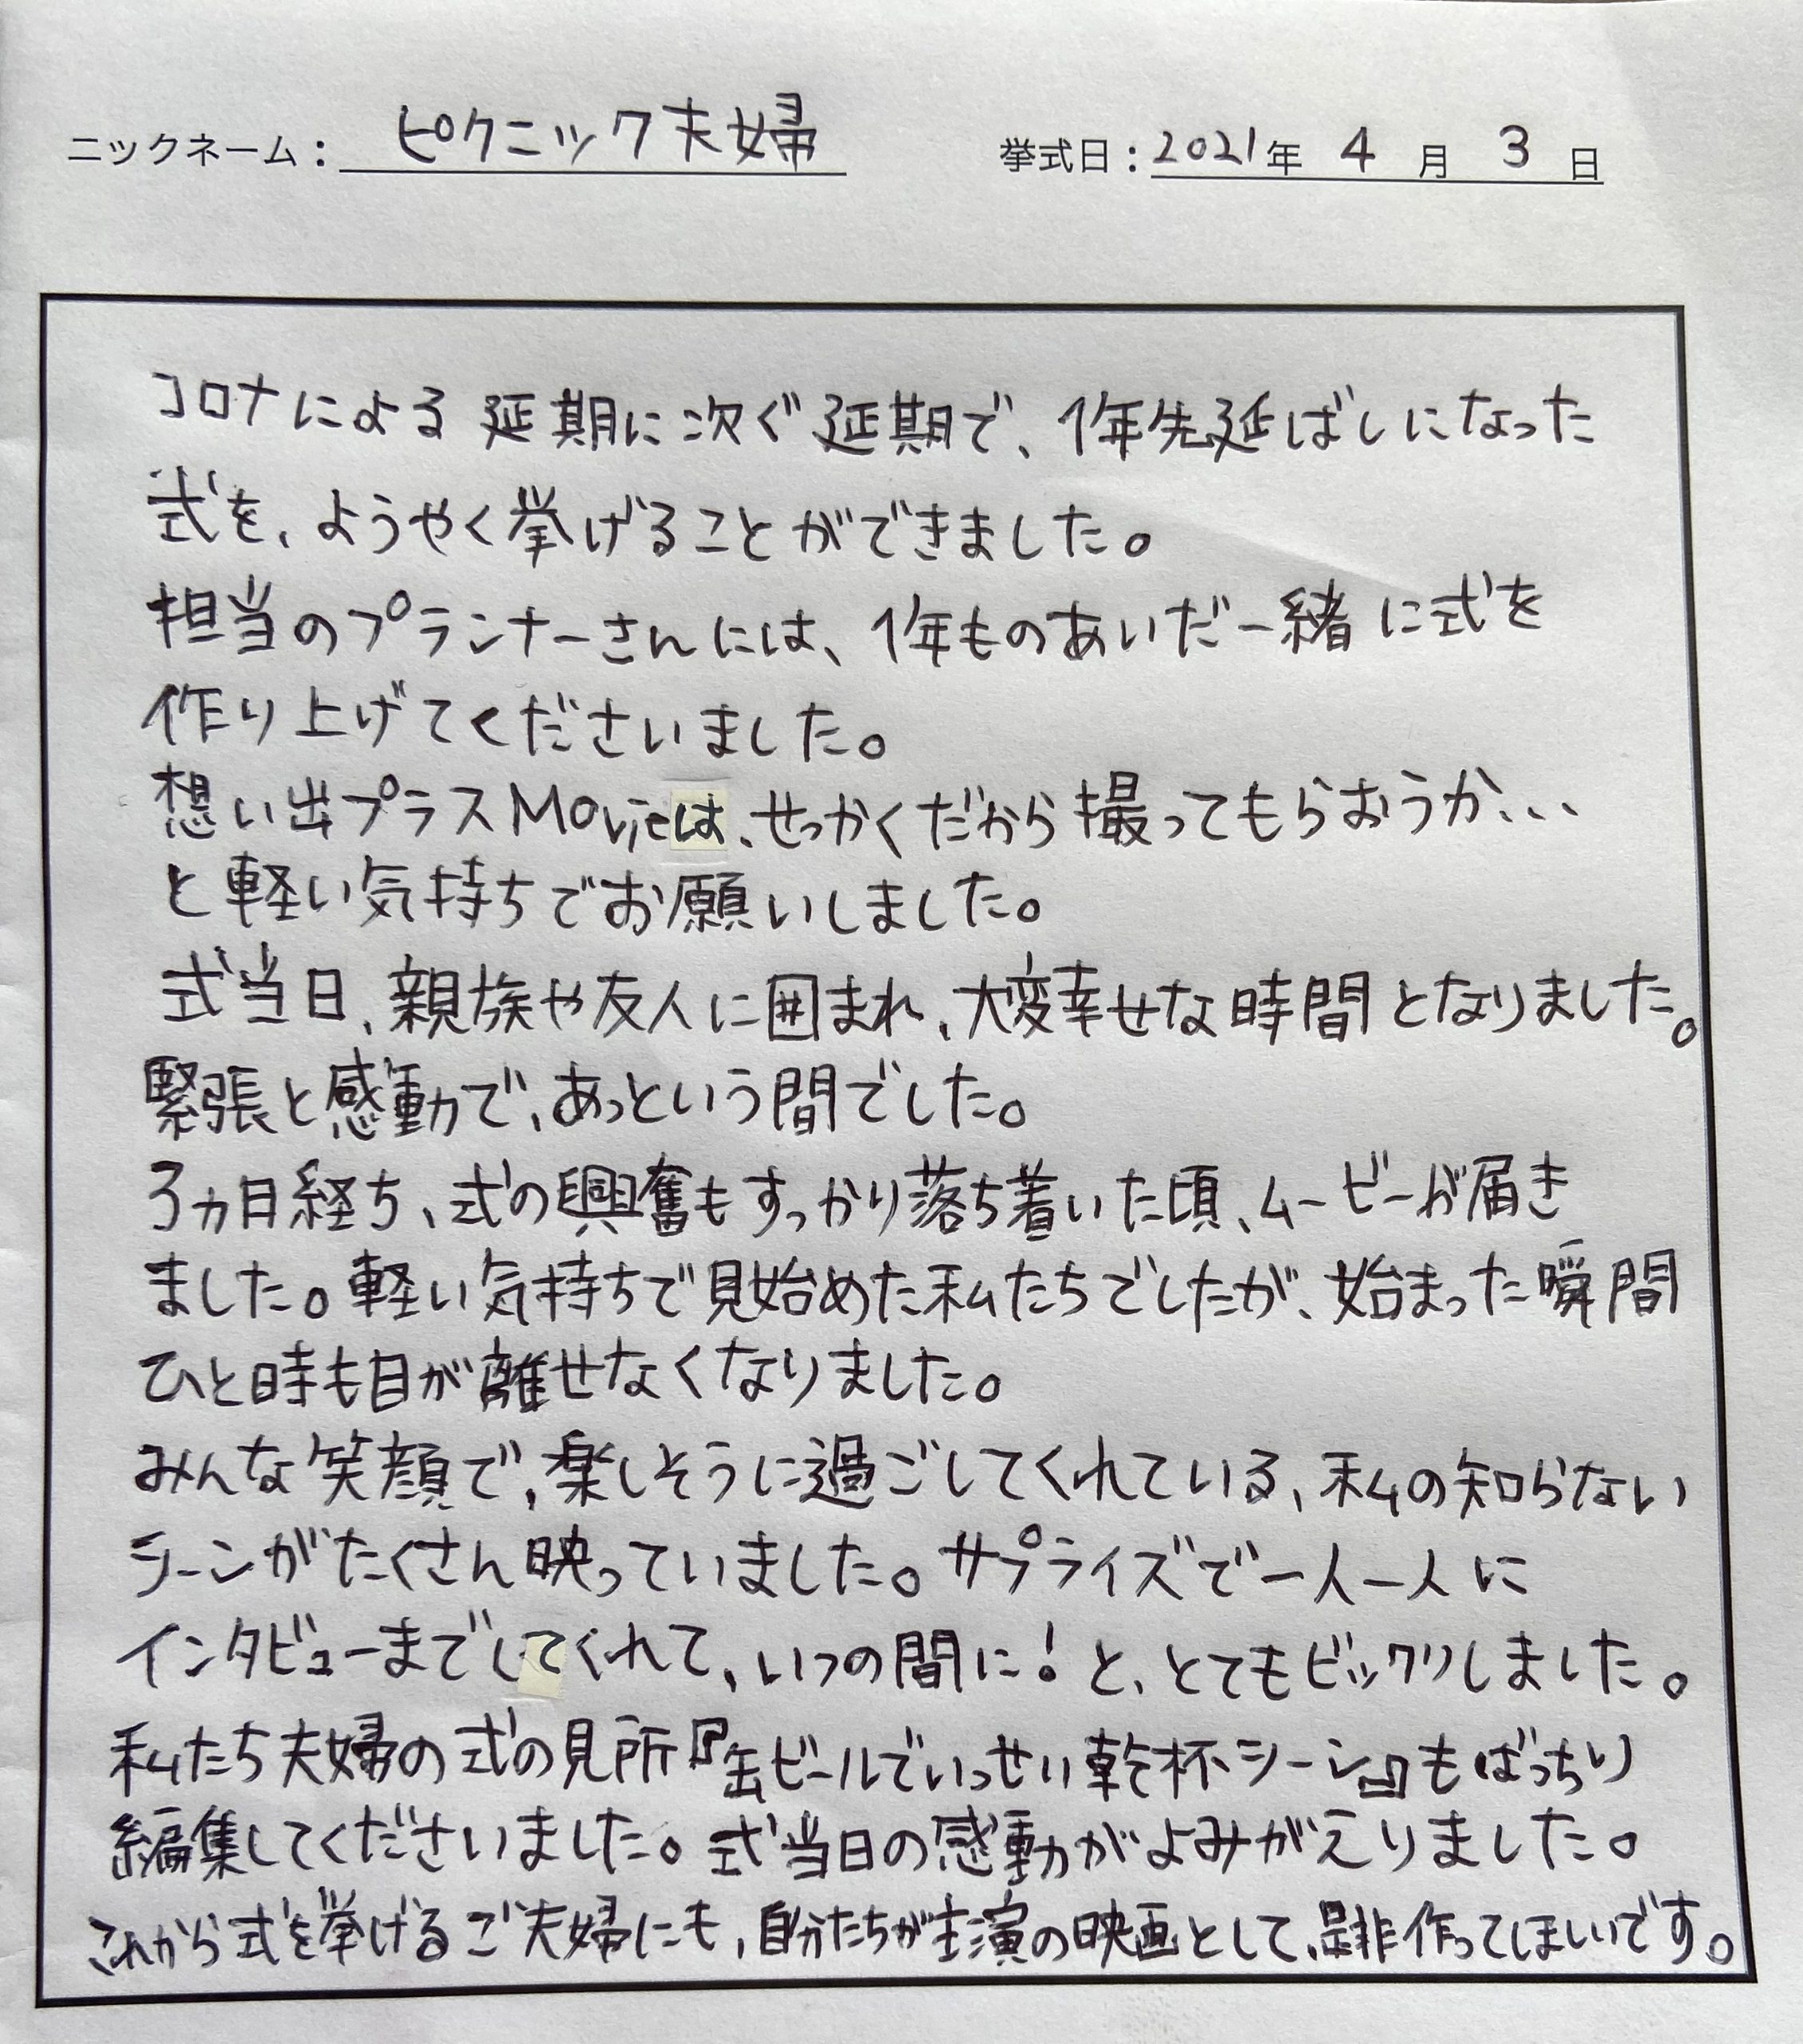 ニックネーム：ピクニック夫婦　挙式日：2021年 4月 3日
コロナによる延期に次ぐ延期で、1年先延ばしになった
式を、ようやく挙げることができました。
担当のプランナーさんには、1年ものあいだ一緒に式を
作り上げてくださいました。
想い出プラスMovieは、せっかくだから撮ってもらおうか、、、
と軽い気持ちでお願いしました。
式当日、親族や友人に囲まれ、大変幸せな時間となりました。
緊張と感動で、あっという間でした。
3ヵ月経ち、式の興奮もすっかり落ち着いた頃、ムービーが届き
ました。軽い気持ちで見始めた私たちでしたが、始まった瞬間
ひと時も目が離せなくなりました。
みんな笑顔で、楽しそうに過ごしてくれている、私の知らない
シーンがたくさん映っていました。サプライズで一人一人に
インタビューまでしてくれて、いつの間に！と、とてもビックリしました。
私たち夫婦の式の見所『缶ビールでいっせい乾杯シーン』もばっちり
編集してくださいました。式当日の感動がよみがえりました。
これから式を挙げるご夫婦にも、自分たちが主演の映画として、是非作ってほしいです。